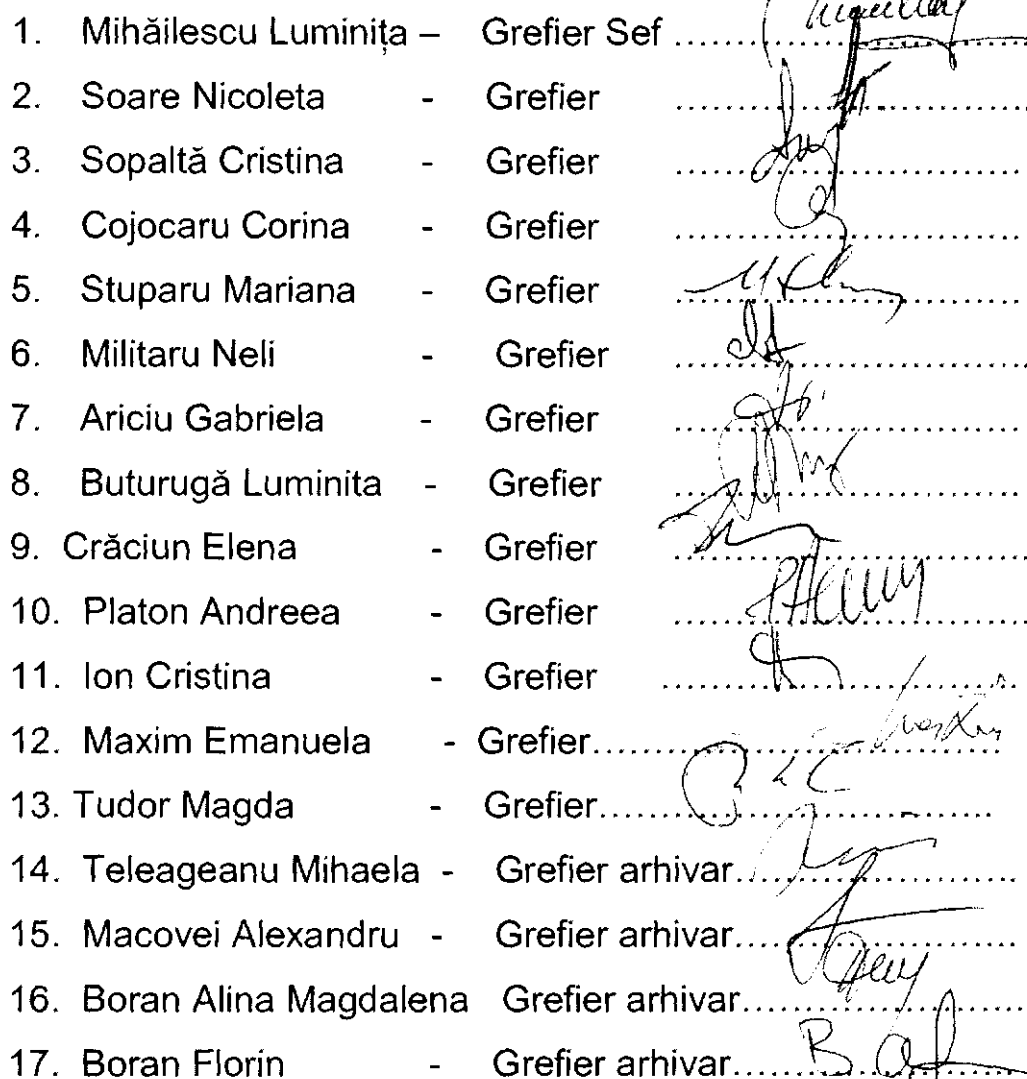 1. Mihăilescu Luminița – Grefier Sef ..........................
2. Soare Nicoleta - Grefier ..........................
3. Sopaltă Cristina - Grefier ..........................
4. Cojocaru Corina - Grefier ..........................
5. Stuparu Mariana - Grefier ..........................
6. Militaru Neli - Grefier ..........................
7. Ariciu Gabriela - Grefier ..........................
8. Buturugă Luminita - Grefier ..........................
9. Crăciun Elena - Grefier ..........................
10. Platon Andreea - Grefier ..........................
11. Ion Cristina - Grefier ..........................
12. Maxim Emanuela - Grefier..........................
13. Tudor Magda - Grefier..........................
14. Teleageanu Mihaela - Grefier arhivar....................
15. Macovei Alexandru - Grefier arhivar....................
16. Boran Alina Magdalena Grefier arhivar....................
17. Boran Florin - Grefier arhivar....................